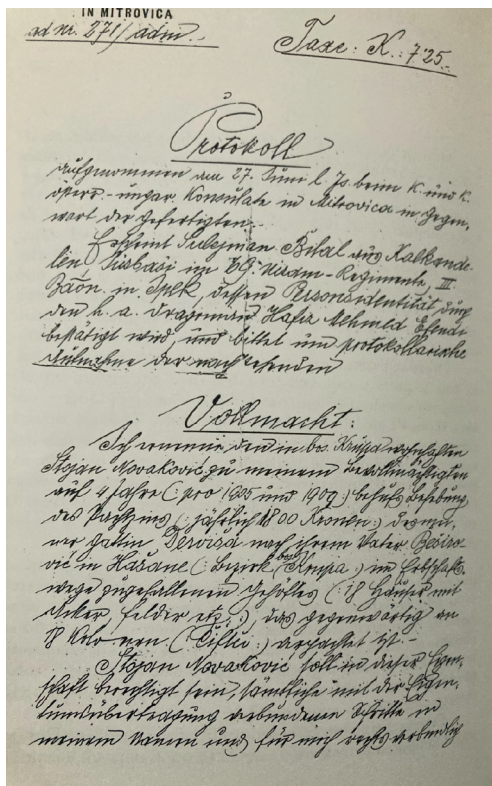 IN MITROVICA
ad nr. 271/adm.
Taxe: K.: 7·25.-
Protokoll
aufgenommen am 27. Juni l. Js. beim k. und k.
österr.-ungar. Konsulate in Mitrovica in Gegen-
wart der Gefertigten.
Erscheint Sulejman Bilal aus Kalkande-
len im 69. Nizam-Regimente, III.
Baon. in Ipek, dessen Personsidentität durch
den h. a. Dragoman Hafiz Ahmed Efendi
bestätigt wird, und bittet um protokollarische
Aufnahme der nachstehenden
Vollmacht:
Ich ernenne den in bos. Krupa wohnhaften
Stojan Novaković zu meinem Bevollmächtigten
auf 4 Jahre (: pro 1905 und 1909 :) behufs Behebung
des Pachtzins (: jährlich 1800 Kronen :) des mei-
ner Gattin nach ihrem Vater
in Hašane (: bezirk bos. Krupa :) im Erbschafts-
wege zugefallenen Gehöftes (: 18 Häuser mit
Äcker, Felder etz. :), das gegenwärtig an
18 (: Čiftči :) verpachtet ist.-
Stojan Novaković soll in dieser Eigen-
schaft berechtigt sein, sämtliche mit der Eigen-
tumsübertragung verbundenen Schritte in
meinem Namen und für mich rechtsverbindlich